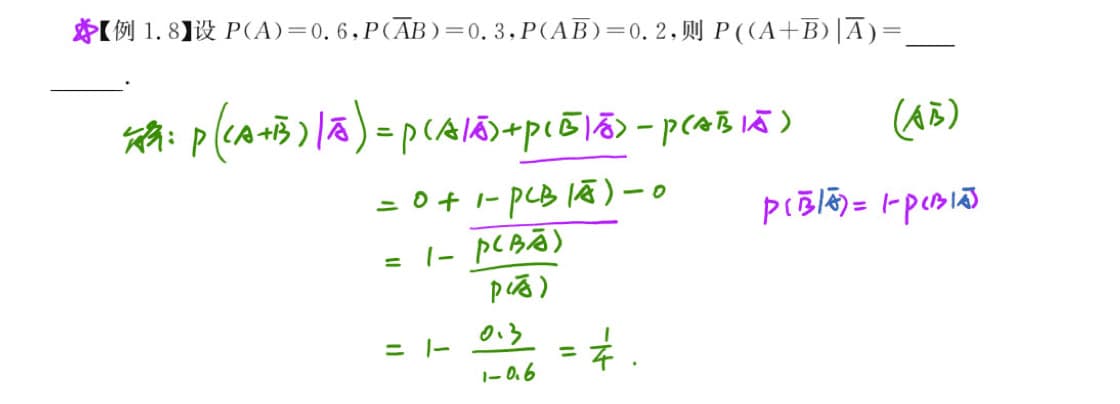 【例 1.8】设 P(A)=0.6,P(A̅B)=0.3,P(AB̅)=0.2,则 P((A+B̅)|A̅)=____
______.
解: P((A+B̅)|A̅)=P(A|A̅)+P(B̅|A̅)-P(AB̅|A̅) (AB̅)
= 0 + 1-P(B|A̅)-0 P(B̅|A̅)=1-P(B|A̅)
= 1- P(BA̅)
P(A̅)
= 1- 0.3 = 1
1-0.6 4 .